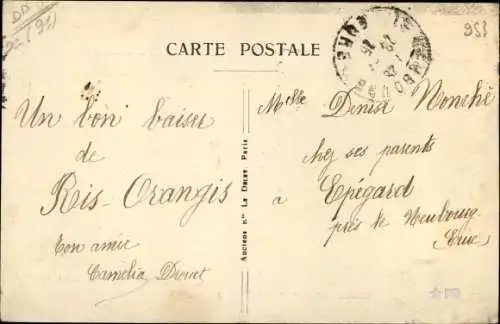 CARTE POSTALE
953
Un bon baiser
de
Ris-Orangis
Ton amie
Camélia Drouet
Anciens Etts Le Deley, Paris
Melle Denise
chez ses parents
à Epégard
près le Neubourg
Eure